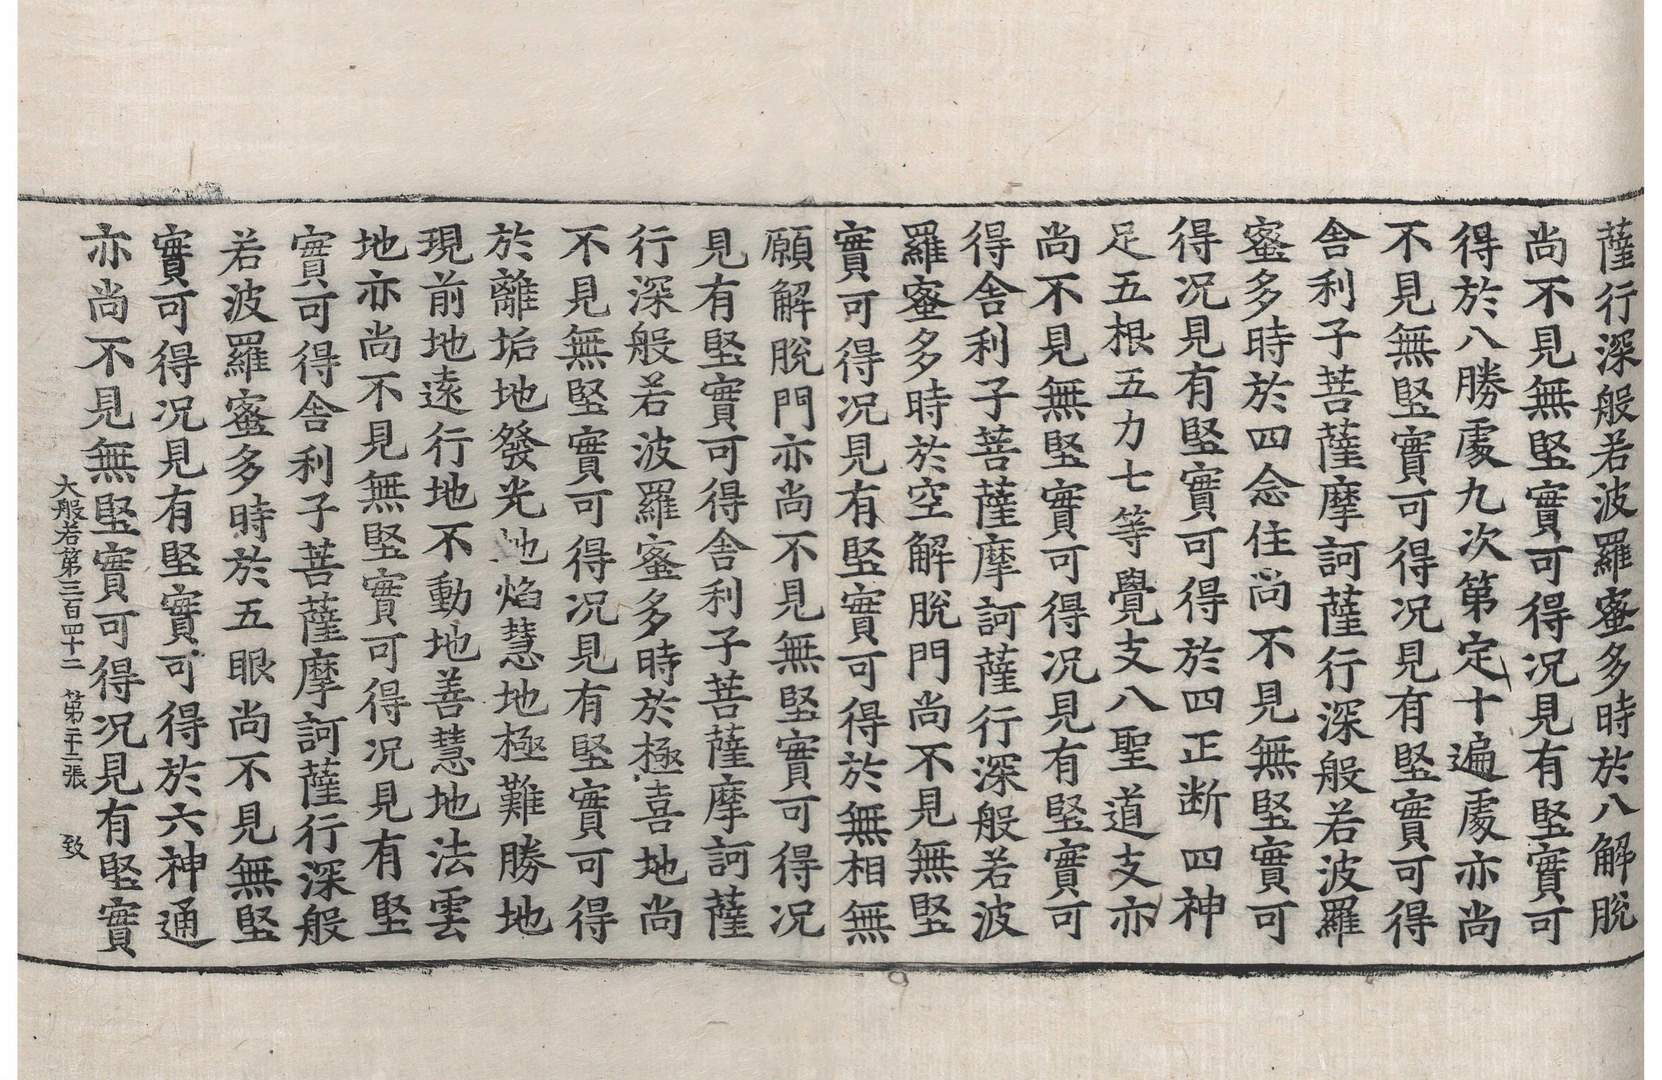 薩行深般若波羅蜜多時於八解脫
尚不見無堅實可得況見有堅實可
得於八勝處九次第定十遍處亦尚
不見無堅實可得況見有堅實可得
舍利子菩薩摩訶薩行深般若波羅
蜜多時於四念住尚不見無堅實可
得況見有堅實可得於四正斷四神
足五根五力七等覺支八聖道支亦
尚不見無堅實可得況見有堅實可
得舍利子菩薩摩訶薩行深般若波
羅蜜多時於空解脫門尚不見無堅
實可得況見有堅實可得於無相無
願解脫門亦尚不見無堅實可得況
見有堅實可得舍利子菩薩摩訶薩
行深般若波羅蜜多時於極喜地尚
不見無堅實可得況見有堅實可得
於離垢地發光地焰慧地極難勝地
現前地遠行地不動地善慧地法雲
地亦尚不見無堅實可得況見有堅
實可得舍利子菩薩摩訶薩行深般
若波羅蜜多時於五眼尚不見無堅
實可得況見有堅實可得於六神通
亦尚不見無堅實可得況見有堅實
大般若第三百四十二 第二十二張 致